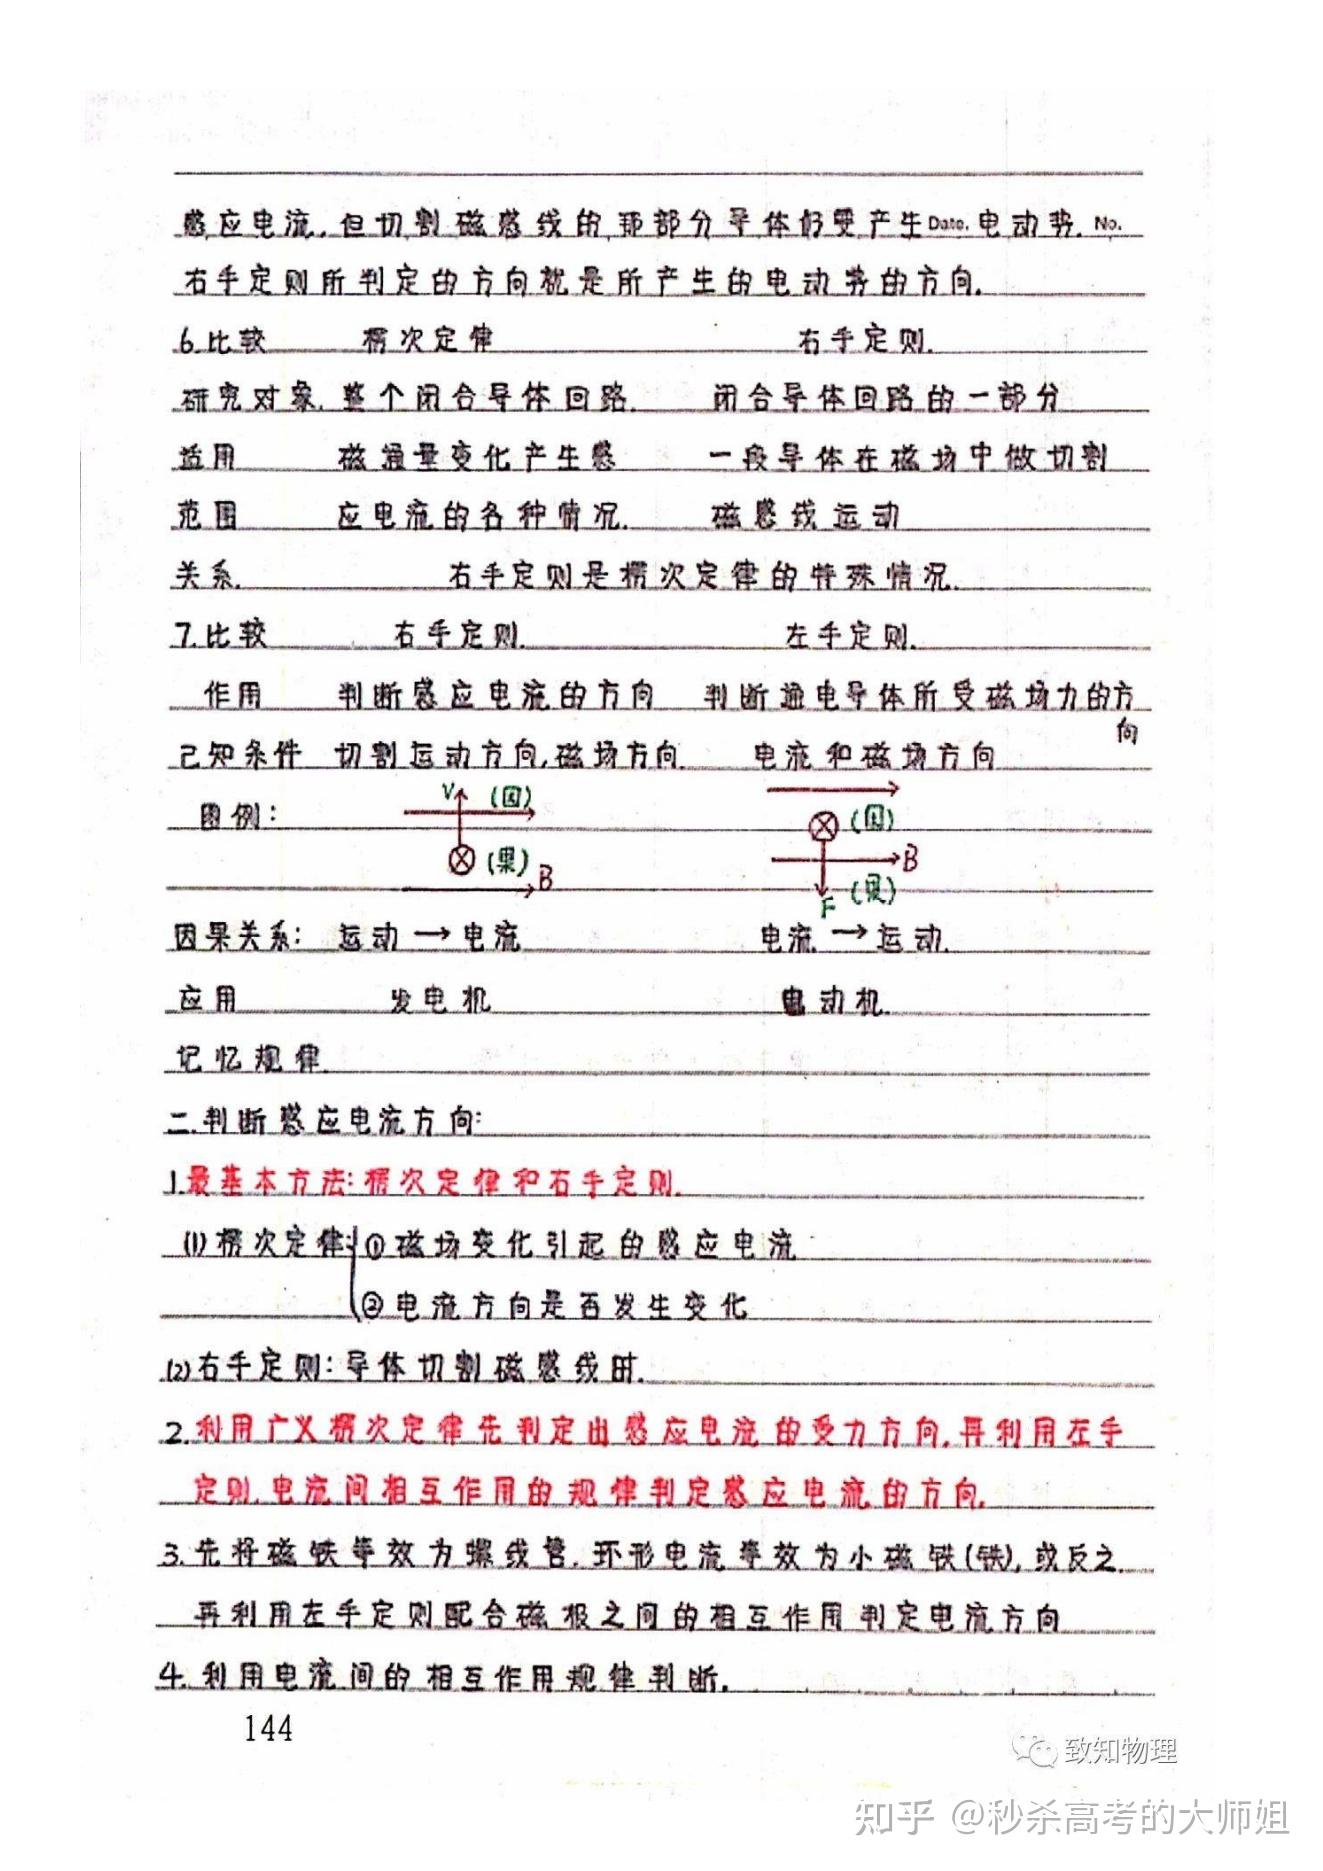 感应电流,但切割磁感线的那部分导体仍要产生Date.电动势. No.
右手定则所判定的方向就是所产生的电动势的方向.
6.比较 楞次定律 右手定则.
研究对象. 整个闭合导体回路. 闭合导体回路的一部分
适用 磁通量变化产生感 一段导体在磁场中做切割
范围 应电流的各种情况. 磁感线运动
关系. 右手定则是楞次定律的特殊情况.
7.比较 右手定则. 左手定则.
作用 判断感应电流的方向 判断通电导体所受磁场力的方
向
已知条件 切割运动方向,磁场方向. 电流和磁场方向
图例: V (因) (果) B (因) B F (果)
因果关系: 运动→电流 电流→运动.
应用 发电机 电动机.
记忆规律.
二.判断感应电流方向:
1.最基本方法:楞次定律和右手定则.
(1)楞次定律: ①磁场变化引起的感应电流
②电流方向是否发生变化
(2)右手定则:导体切割磁感线时.
2.利用广义楞次定律先判定出感应电流的受力方向,再利用左手
定则,电流间相互作用的规律判定感应电流的方向.
3.先将磁铁等效为螺线管,环形电流等效为小磁铁(铁),或反之.
再利用左手定则配合磁极之间的相互作用判定电流方向
4.利用电流间的相互作用规律判断.
144
致知物理
知乎 @秒杀高考的大师姐